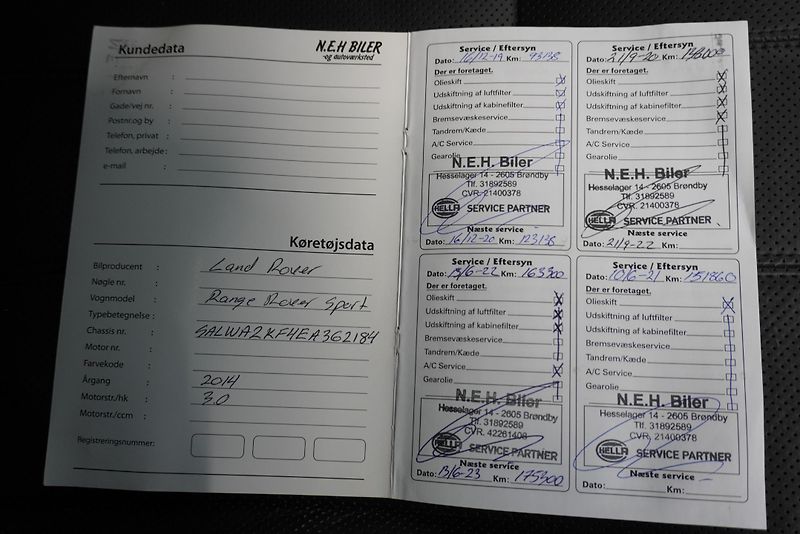 Kundedata
N.E.H BILER
-og autoværksted
Efternavn :
Fornavn :
Gade/vej nr. :
Postnr.og by :
Telefon, privat :
Telefon, arbejde:
e-mail :
Køretøjsdata
Bilproducent : Land Rover
Nøgle nr. :
Vognmodel : Range Rover Sport
Typebetegnelse :
Chassis nr. : SALWA2KF4EA362184
Motor nr. :
Farvekode :
Årgang : 2014
Motorstr./hk : 3.0
Motorstr./ccm :
Registreringsnummer:
Service / Eftersyn
Dato: 16/12-19 Km: 93138
Der er foretaget.
Olieskift
Udskiftning af luftfilter
Udskiftning af kabinefilter
Bremsevæskeservice
Tandrem/Kæde
A/C Service
Gearolie
N.E.H. Biler
Hesselager 14 - 2605 Brøndby
Tlf. 31892589
CVR. 21400378
HELLA SERVICE PARTNER
Næste service
Dato: 16/12-20 Km: 123138
Service / Eftersyn
Dato: 21/9-20 Km:
Der er foretaget.
Olieskift
Udskiftning af luftfilter
Udskiftning af kabinefilter
Bremsevæskeservice
Tandrem/Kæde
A/C Service
Gearolie
N.E.H. Biler
Hesselager 14 - 2605 Brøndby
Tlf. 31892589
CVR. 21400378
HELLA SERVICE PARTNER
Næste service
Dato: 21/9-22 Km:
Service / Eftersyn
Dato: 13/6-22 Km: 163300
Der er foretaget.
Olieskift
Udskiftning af luftfilter
Udskiftning af kabinefilter
Bremsevæskeservice
Tandrem/Kæde
A/C Service
Gearolie
N.E.H. Biler
Hesselager 14 - 2605 Brøndby
Tlf. 31892589
CVR. 42261408
HELLA SERVICE PARTNER
Næste service
Dato: 13/6-23 Km: 175300
Service / Eftersyn
Dato: 10/6-21 Km: 151860
Der er foretaget.
Olieskift
Udskiftning af luftfilter
Udskiftning af kabinefilter
Bremsevæskeservice
Tandrem/Kæde
A/C Service
Gearolie
N.E.H. Biler
Hesselager 14 - 2605 Brøndby
Tlf. 31892589
CVR. 21400378
HELLA SERVICE PARTNER
Næste service
Dato: Km: